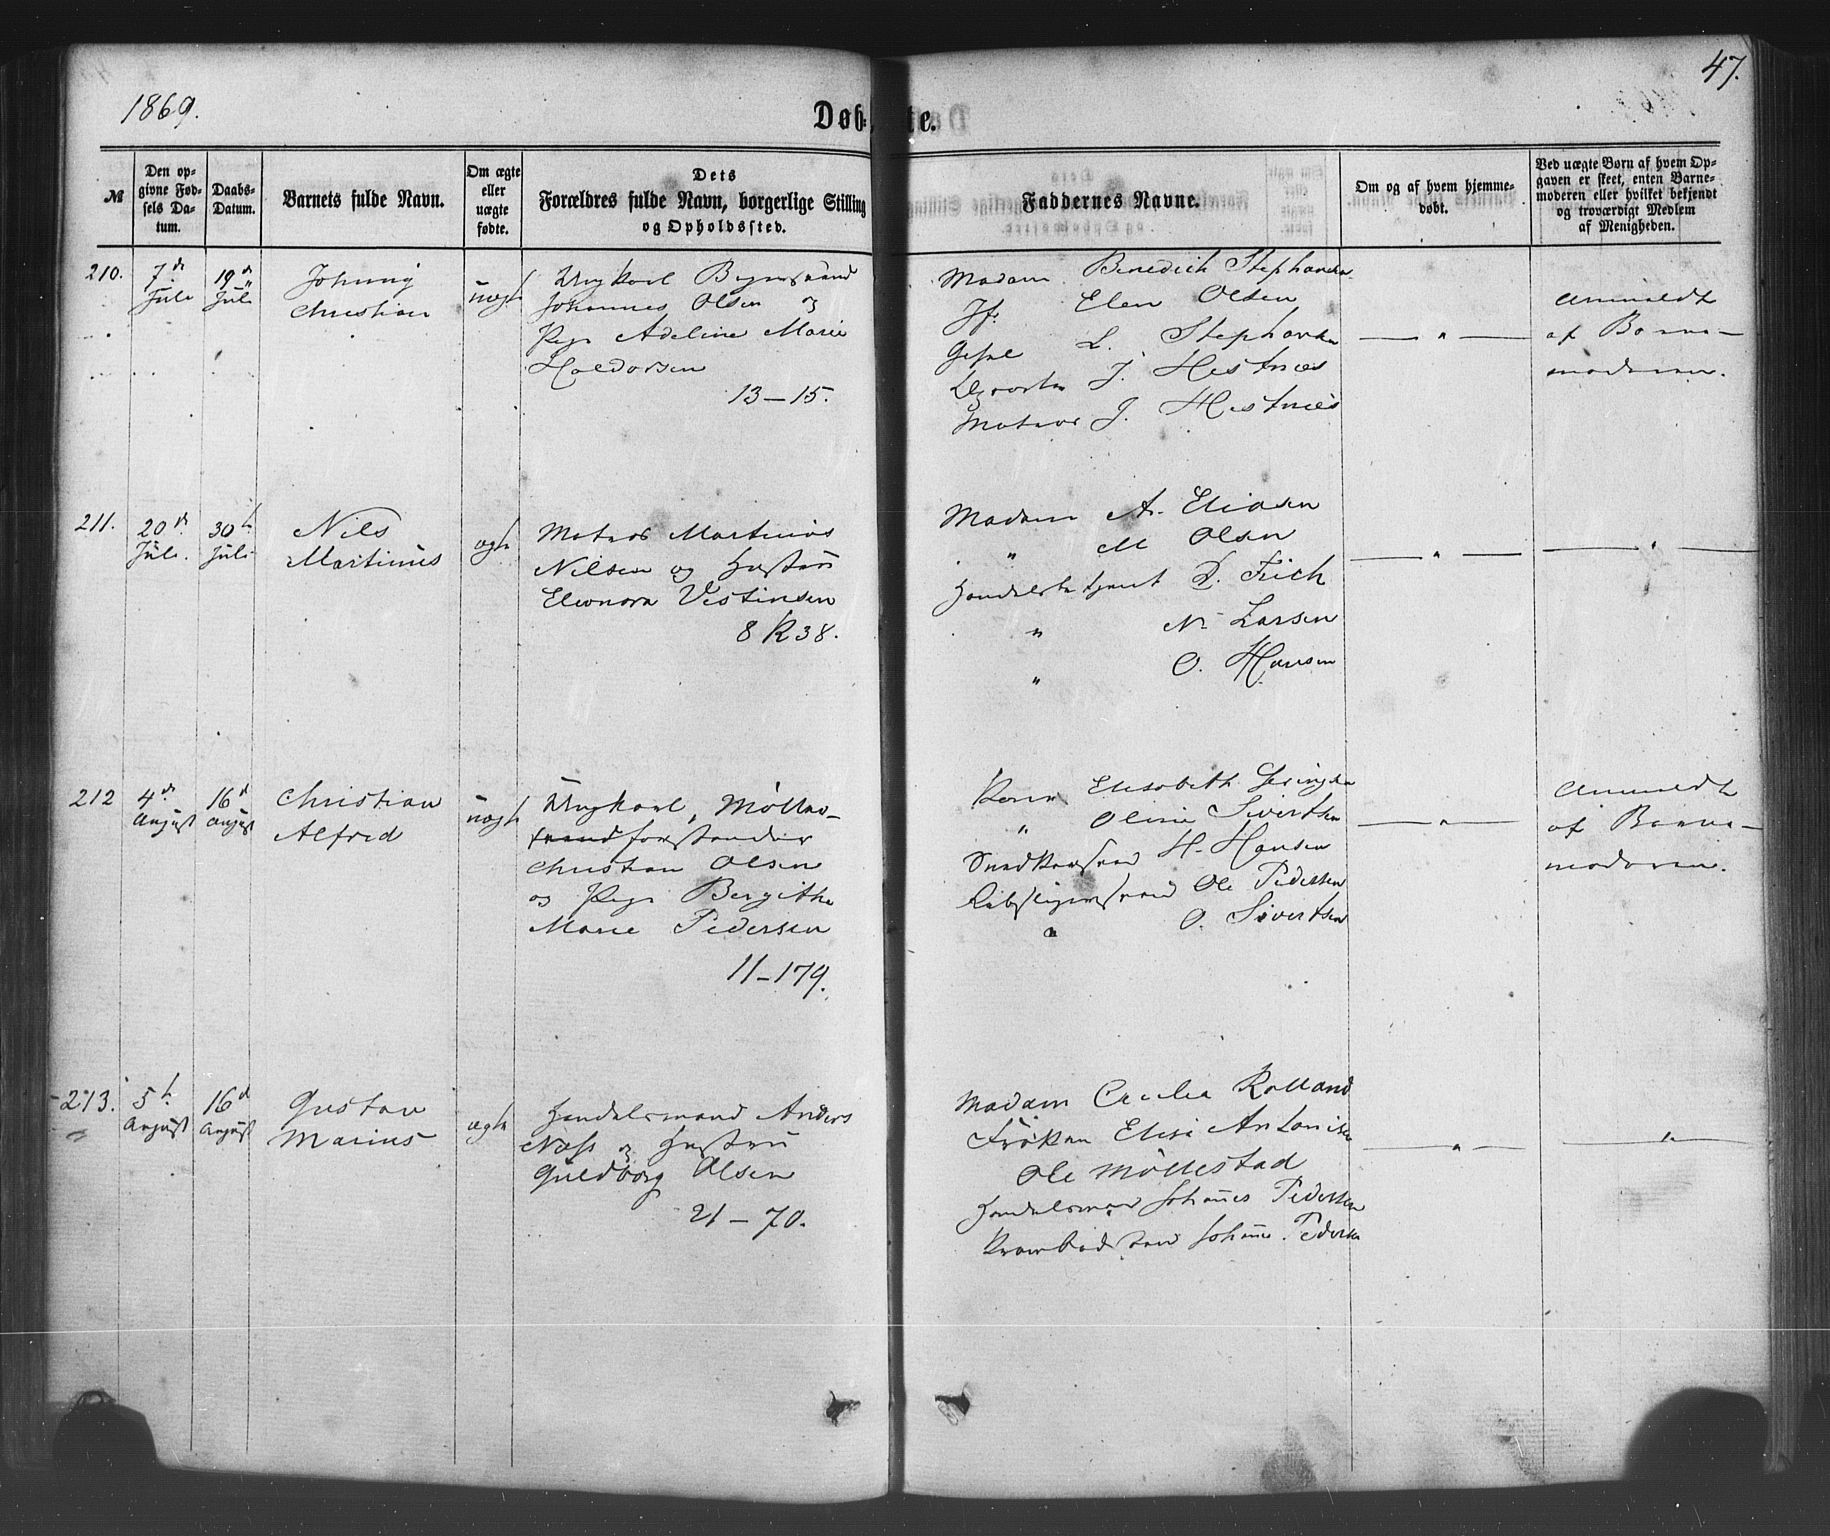 1869.
Døb-te.
47.
№
Den opgivne Fødsels Datum.
Daabs-Datum.
Barnets fulde Navn.
Om ægte eller uægte fødte.
Dets Forældres fulde Navn, borgerlige Stilling og Opholdssted.
Faddernes Navne.
Om og af hvem hjemmedøbt.
Ved uægte Børn af hvem Opgaven er skeet, enten Barnemoderen eller hvilket bekjendt og troværdigt Medlem af Menigheden.
210.
7de Juli
19de Juli
Johnny
Christian
uægte
Ungkarl
Johannes Olsen og
Pige Adeline Marie
Haldorsen
13-15.
Madam Benedict Stephansen
Jf. Elen Olsen
L. Stephansen
J. Hestnæs
Matros J. Hestnæs
"
Anmeldt
af Barne-
moderen.
211.
20de Juli.
30te Juli
Nils
Martinus
ægte
Matros Martinus
Nilsen og Hustru
Eleonora Vestinsen
8 R 38.
Madam A. Eliasen
" M Olsen
Handelsbetjent D. Frich
" N. Larsen
" O. Hansen
"
"
212
4de August
16de August
Christian
Alfred
uægte
Ungkarl,
Christian Olsen
og Pige Bergithe
Marie Pedersen
11-179.
Kone Elisabeth
" Oline Sivertsen
Snedkersvend H. Hansen
Rebslagersvend Ole Pedersen
" O. Sivertsen
"
Anmeldt
af Barne-
moderen.
213.
5te August
16de August
Gustav
Marius
ægte
Handelsmand Anders
Næss og Hustru
Guldborg Olsen
21-70.
Madam Cecilia Rolland
Frøken Elise Antonisen
Ole Møllestad
Handelsmand Johannes Pedersen
Johannes Pedersen
"
"